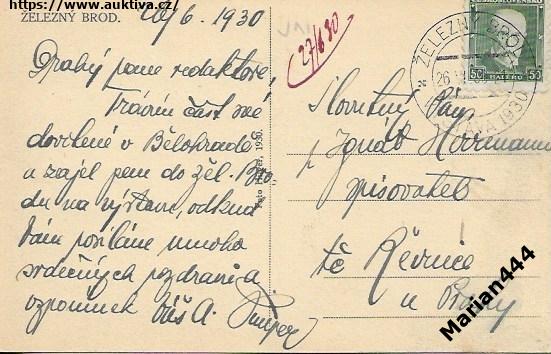 https://www.auktiva.cz/
ŽELEZNÝ BROD.
26/6. 1930
Drahý pane redaktore,
Trávím část své
dovolené v Bělohradě
a zajel jsem do Žel. Bro-
du na výstavu, odkud
Vám posíláme mnoho
srdečných pozdravů a
vzpomínek Váš A.
27/6 30
Foto 1930.
ČESKOSLOVENSKO
50 HALÉŘŮ 50
ŽELEZNÝ BROD
26
1930
Slovutný Pán
p. Ignát Herrmann
spisovatel
tč Řevnice
u Prahy
Marian444